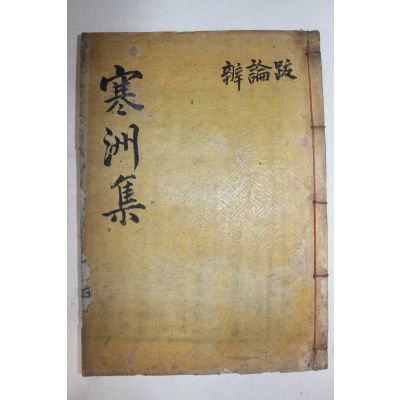 寒洲集
辨論跋